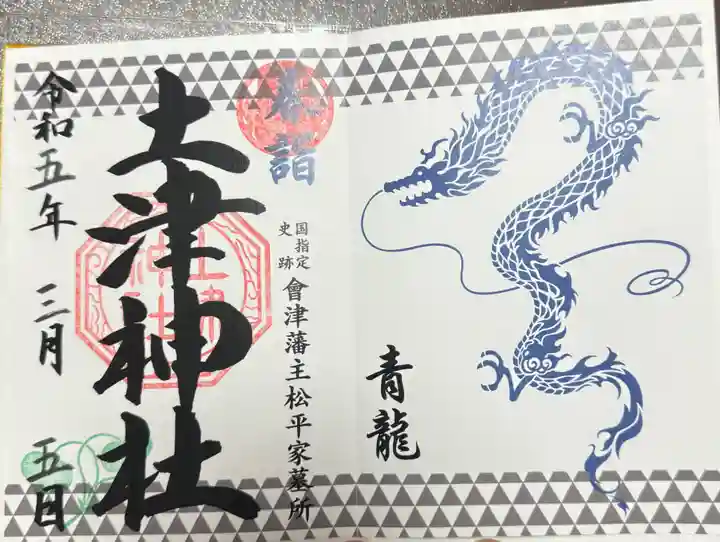 青龍
春詣
国指定
史跡
會津藩主松平家墓所
土津神社
令和五年 三月 五日
土津
神社